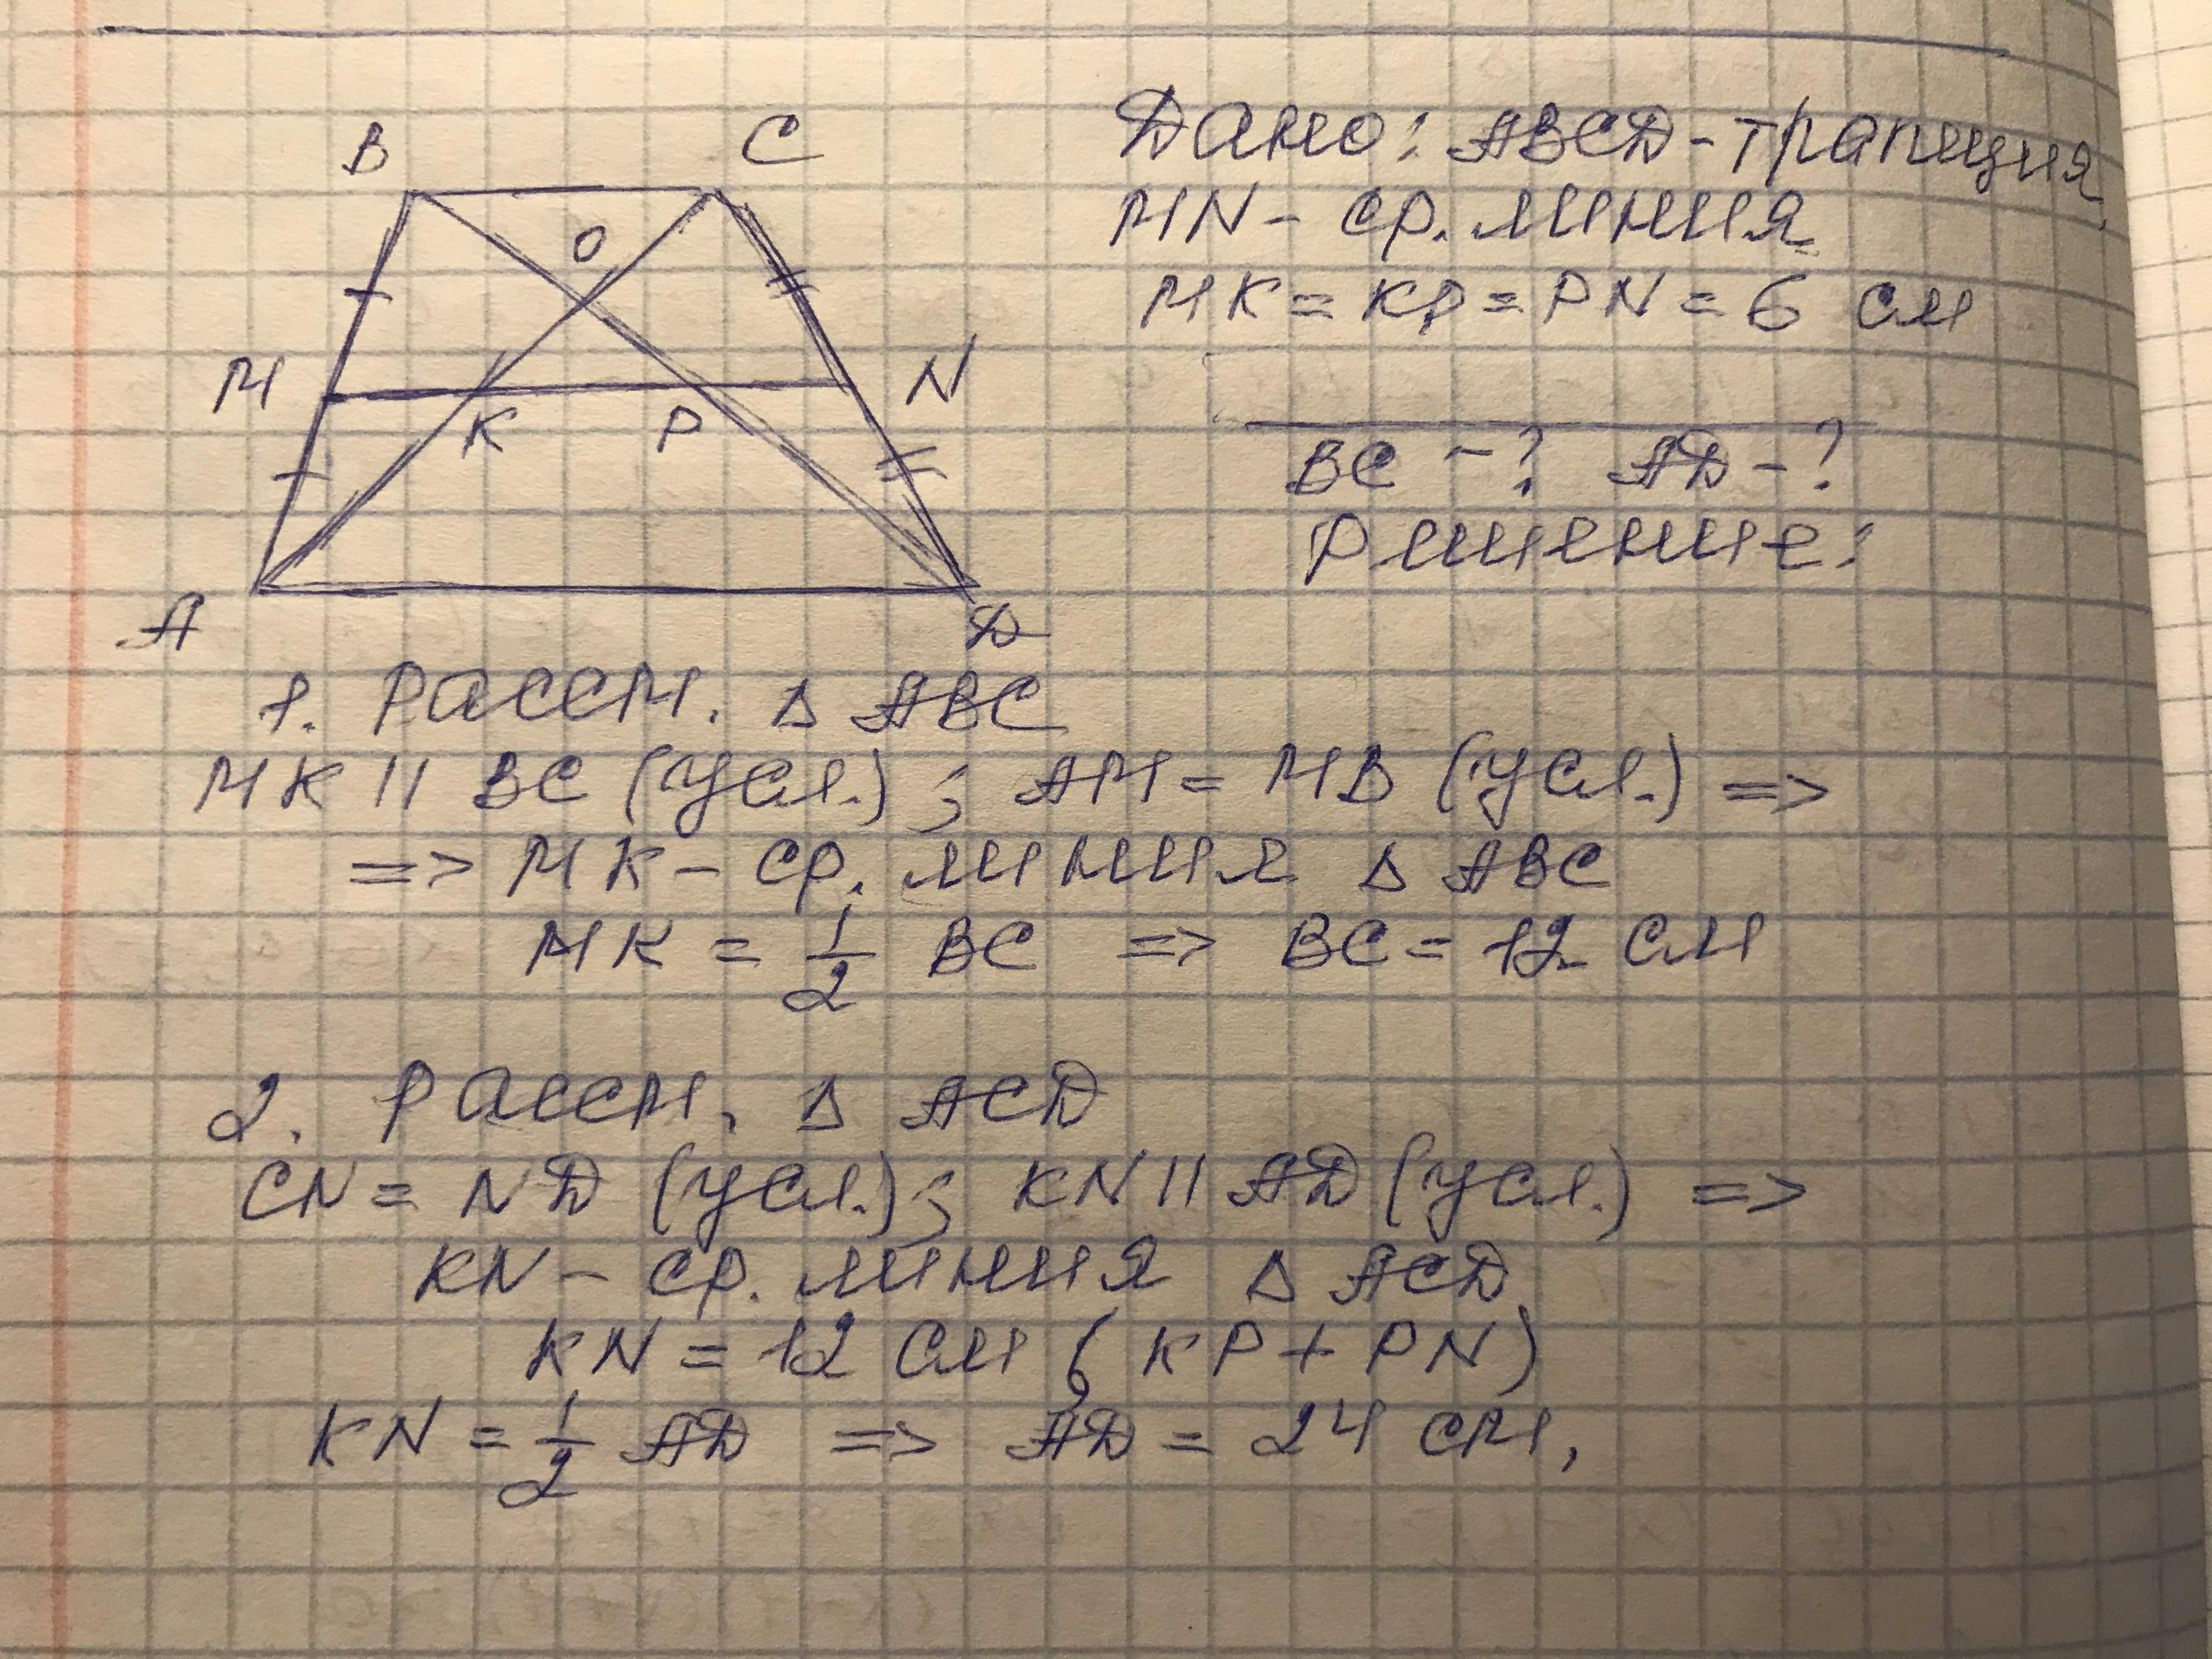 B
C
O
M
N
K
P
A
D
Дано: ABCD - трапеция,
MN - ср. линия
MK = KP = PN = 6 см
BC - ? AD - ?
Решение:
1. Рассм. Δ ABC
MK || BC (усл.); AM = MB (усл.) =>
=> MK - ср. линия Δ ABC
MK = 1/2 BC => BC = 12 см
2. Рассм. Δ ACD
CN = ND (усл.); KN || AD (усл.) =>
KN - ср. линия Δ ACD
KN = 12 см (KP + PN)
KN = 1/2 AD => AD = 24 см,